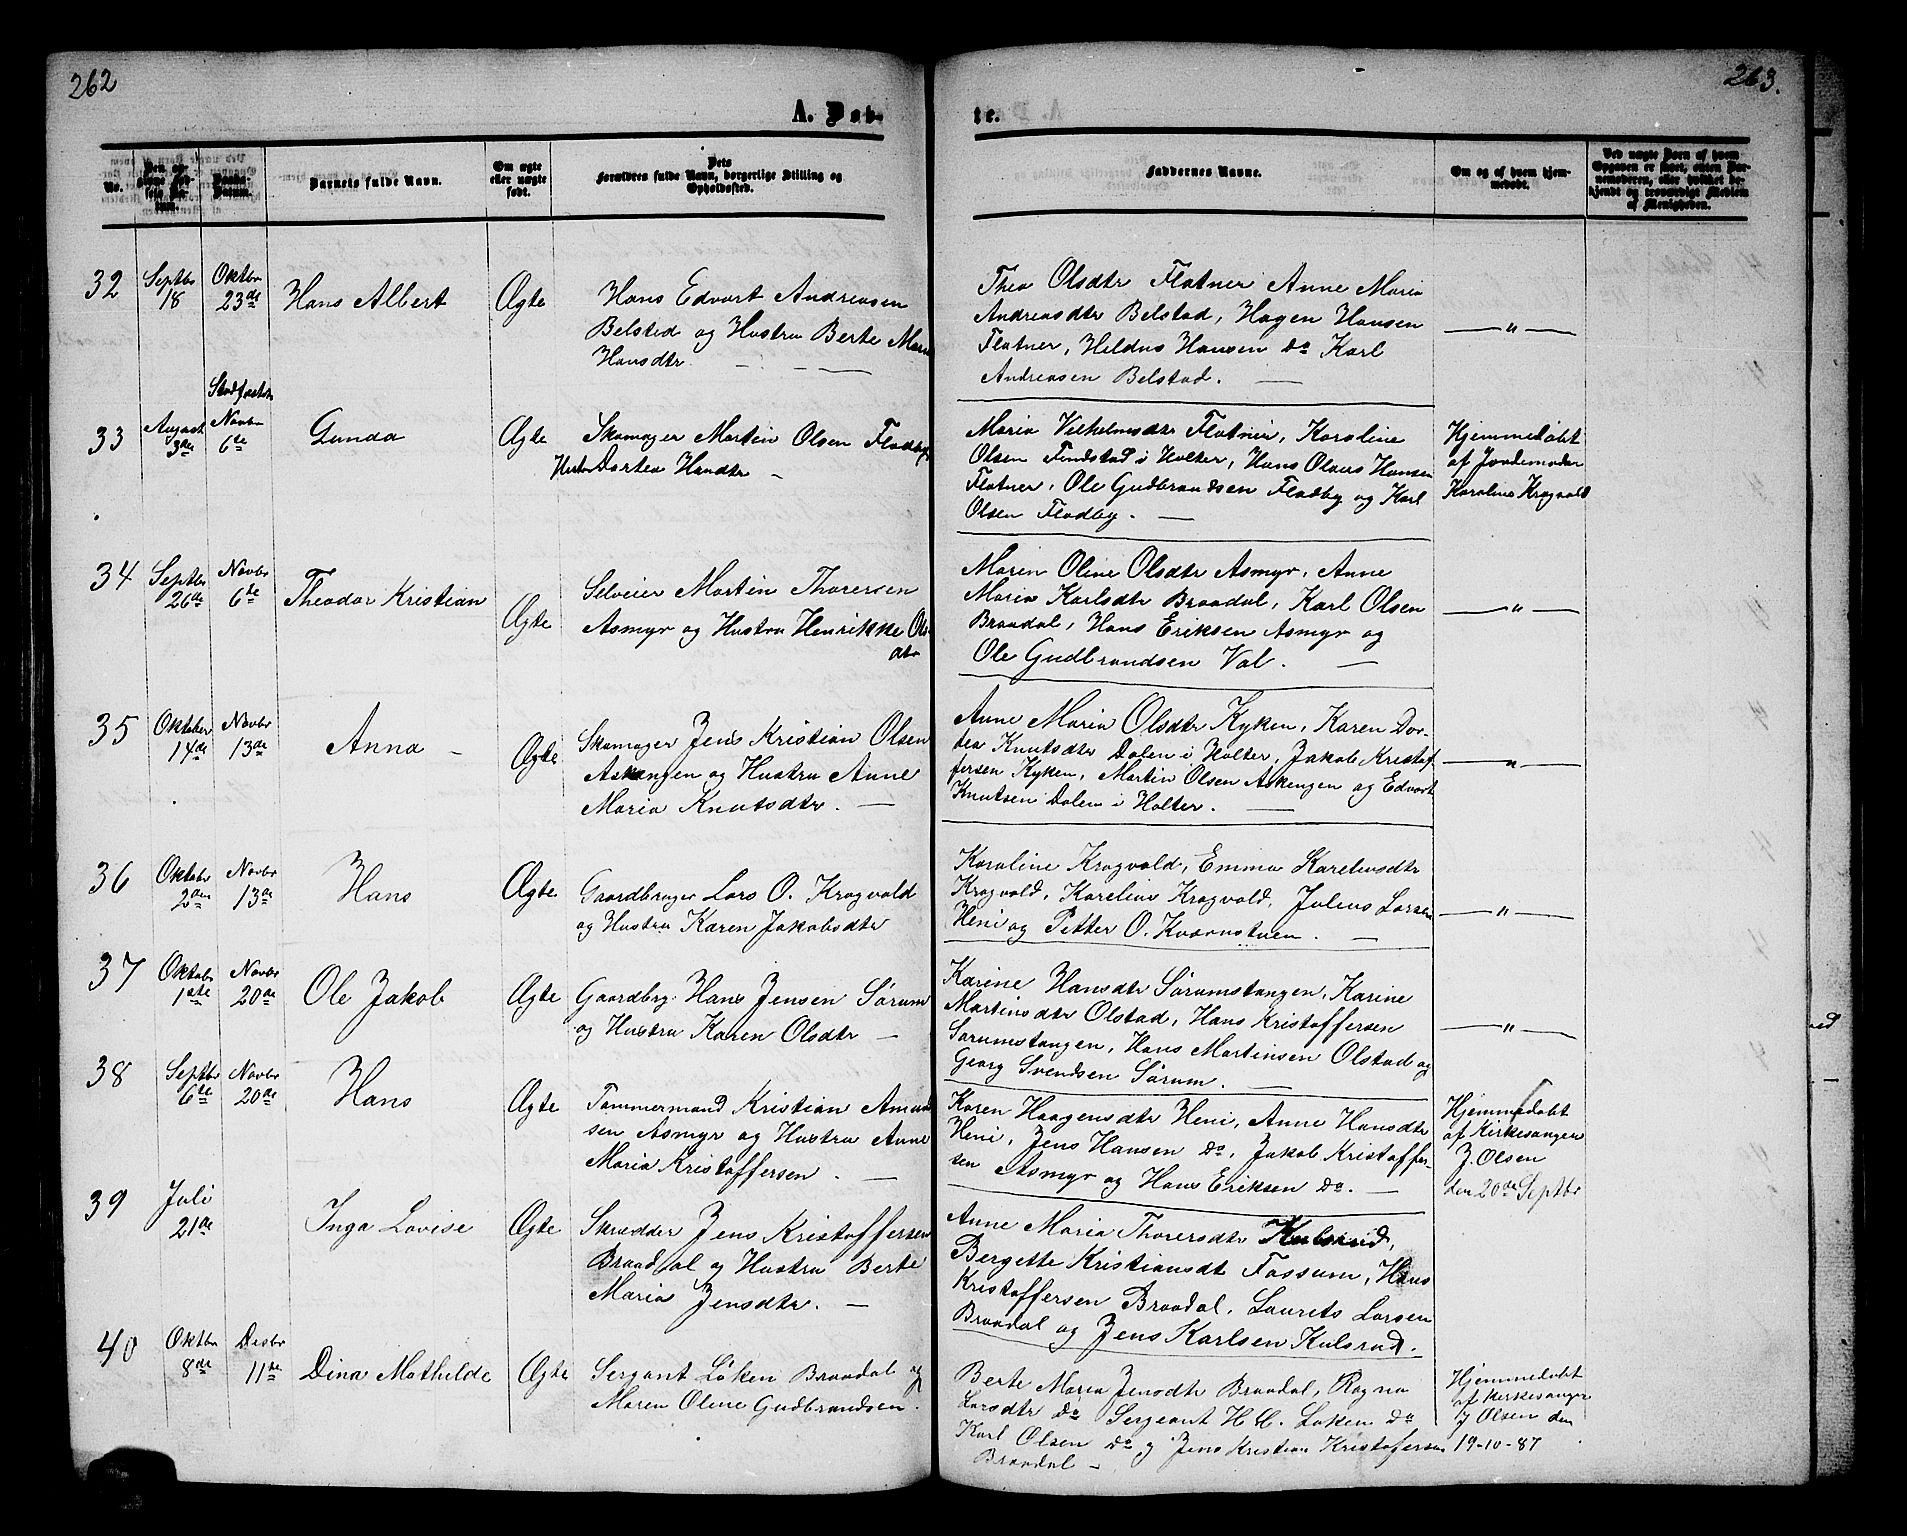 262
263.
A. Døb-
te.
No.
Barnets fulde Navn.
Om ægte
eller uægte
født.
Dets
Forældres fulde Navn, borgerlige Stilling og
Opholdssted.
Faddernes Navne.
Om og af hvem hjem-
medøbt.
Ved uægte Børn af hvem
Opgaven er skeet, enten Jor-
demoderen, eller hvilket be-
kjendt og troværdigt Medlem
af Menigheden.
32
Septbr
18
Oktbr
23de
Hans Albert
Ægte
Hans Edvart Andreasen
Belstad og Hustru Berte Marie
Hansdtr
Thea Olsdtr Flatner Anne Maria
Andreasdtr Belstad, Hagen Hansen
Flatner, Hansen do Karl
Andreasen Belstad.
— " —
33
August
3de
Novbr
6te
Gunda
Ægte
Skomager Martin Olsen Fladby
Hustru Dortea Hansdtr
Maria Vilhelmsdtr Flatner, Karoline
Olsen Findstad i Holter, Hans Olaus Hansen
Flatner, Ole Gudbrandsen Fladby og Karl
Olsen Fladby.
Hjemmedøbt
af Jordemoder
Karoline Kragvold
34
Septbr
26de
Novbr
6te
Theodor Kristian
Ægte
Selveier Martin Thoresen
Asmyr og Hustru Henrikke Ols-
dtr
Maren Oline Olsdtr Asmyr, Anne
Maria Karlsdtr Braadal, Karl Olsen
Braadal, Hans Eriksen Asmyr og
Ole Gudbrandsen Val.
— " —
35
Oktober
14de
Novbr
13de
Anna
Ægte
Skomager Jens Kristian Olsen
Askengen og Hustru Anne
Maria Knutsdtr.
Anne Maria Olsdtr Kyken, Karen Dor-
tea Knutsdtr Dalen i Holter, Jakob Kristof-
fersen Kyken, Martin Olsen Askengen og Edvart
Knutsen Dalen i Holter.
— " —
36
Oktobr
2den
Novbr
13de
Hans
Ægte
Gaardbruger Lars O. Kragvold
og Hustru Karen Jakobsdtr
Karoline Kragvold, Emma Kareliusdtr
Kragvold, Karelius Kragvold, Julius Larsen
Heni og Petter O. Kværnstuen.
— " —
37
Oktobr
1ste
Novbr
20de
Ole Jakob
Ægte
Gaardbrg. Hans Jensen Sørum
og Hustru Karen Olsdtr
Karine Hansdtr Sørumstangen, Karine
Martinsdtr Olstad, Hans Kristoffersen
Sørumstangen, Hans Martinsen Olstad og
Georg Svendsen Sørum.
— " —
38
Septbr
6te
Novbr
20de
Hans
Ægte
Tømmermand Kristian Amund-
sen Asmyr og Hustru Anne
Maria Kristoffersen.
Karen Haagensdtr Heni, Anne Hansdtr
Heni, Jens Hansen do, Jakob Kristoffer-
sen Asmyr og Hans Eriksen do.
Hjemmedøbt
af Kirkesanger
J. Olsen
den 20de Septbr
39
Juli
21de
Inga Lovise
Ægte
Skrædder Jens Kristoffersen
Braadal og Hustru Berte
Maria Jensdtr.
Anne Maria Thorersdtr Kulsrud,
Bergette Kristiansdt Fossum, Hans
Kristoffersen Braadal, Laurets Larsen
Braadal og Jens Karlsen Kulsrud.
40
Oktbr
8de
Desbr
11te
Dina Mathilde
Ægte
Sergant Løken Braadal og
Maren Oline Gudbrandsen.
Berte Maria Jensdtr Braadal, Ragna
Larsdtr do Sergeant H. H. Løken do
Karl Olsen do og Jens Kristian Kristofersen
Braadal
Hjemmedøbt
af Kirkesanger
J Olsen den
19-10-87